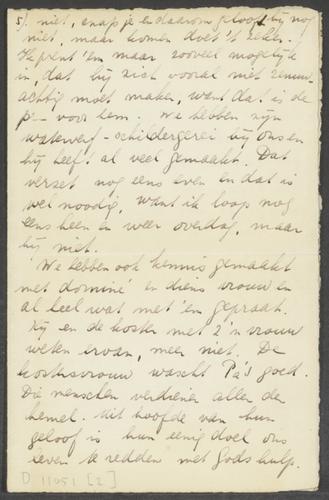 5) niet, snap je en daarom gelooft hij nog
niet, maar komen doet 't zeker.
Ik prent 'em maar zooveel mogelijk
in, dat hij zich vooral niet zenuw-
achtig moet maken, want dat is de
voor hem. We hebben zijn
waterverf-schildergerei bij ons en
hij heeft al veel gemaakt. Dat
verzet nog eens even en dat is
wel noodig, want ik loop nog
eens heen en weer overdag, maar
hij niet.
We hebben ook kennis gemaakt
met dominé en diens vrouw en
al heel wat met 'em gepraat.
Hij en de koster met z'n vrouw
weten ervan, meer niet. De
kostersvrouw wascht Pa's goed.
Die menschen verdienen allen den
hemel. Uit hoofde van hun
geloof is hun eenig doel ons
leven te redden met Gods hulp.
D 11051 [2]